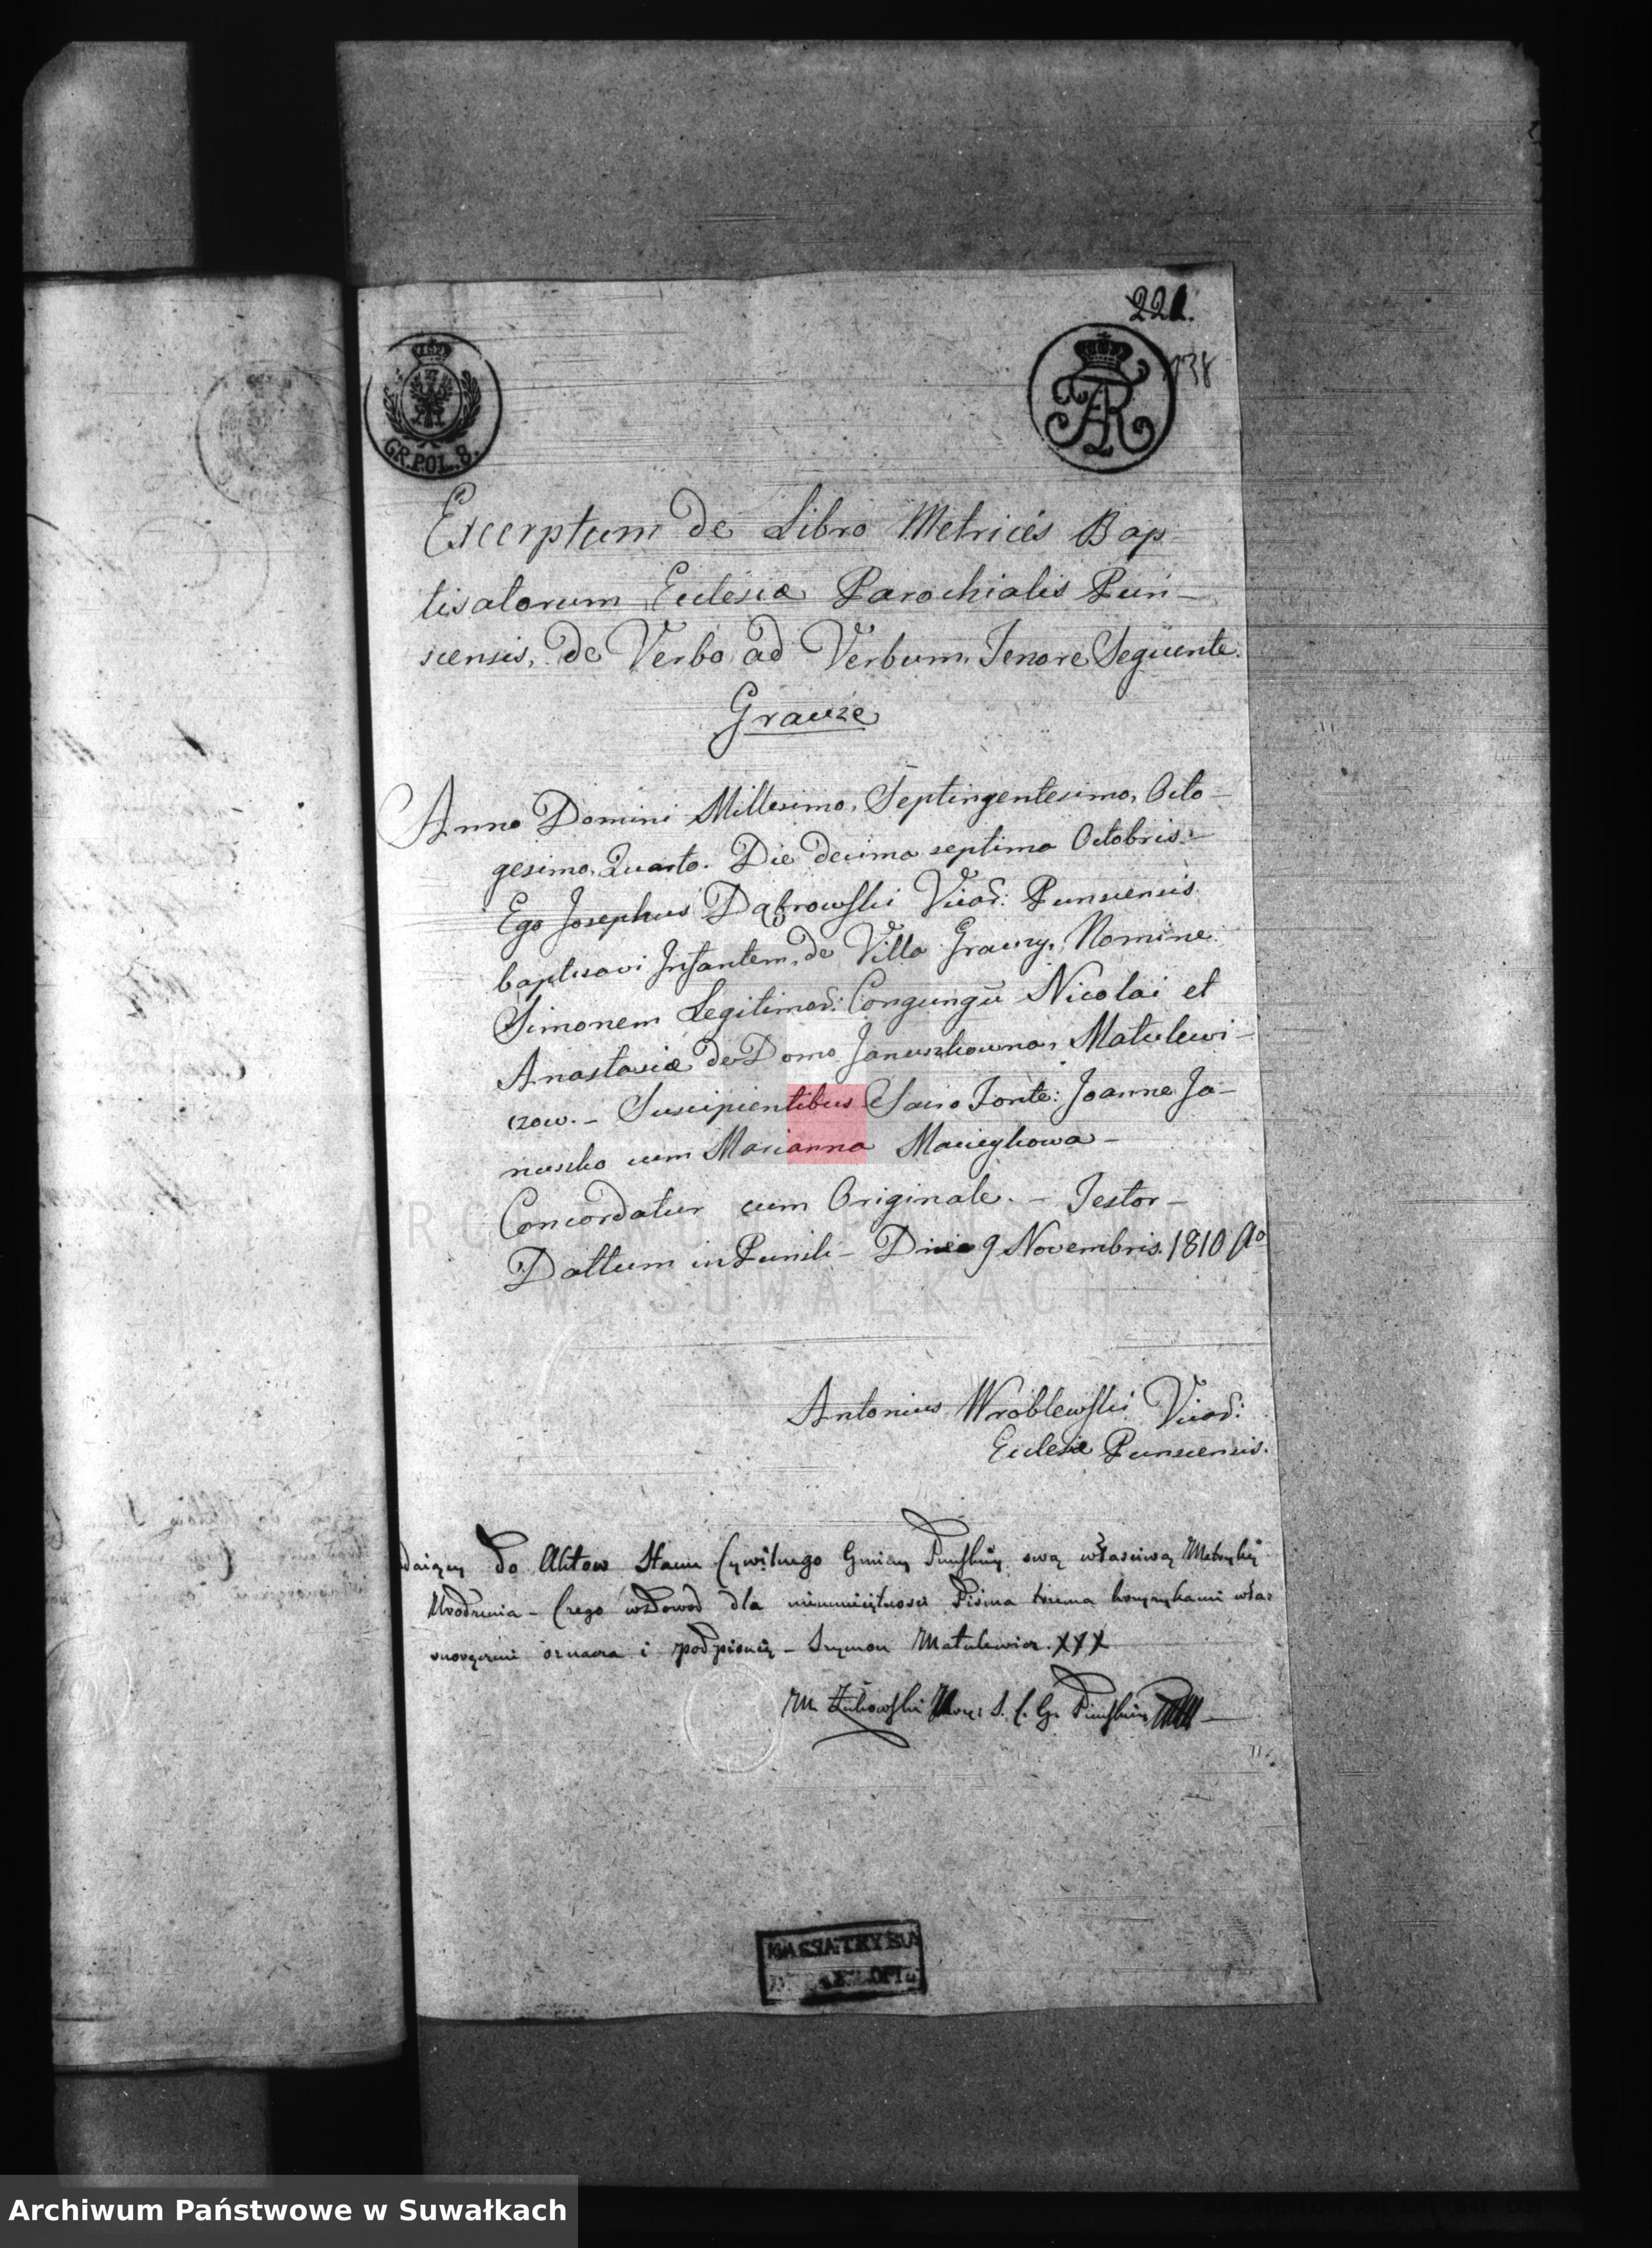 221.
138
GR.POL.8.
FAR
Excerptum de Libro Metrices Bap
tisatorum Eclesiæ Parochialis Pun-
scensis, de Verbo ad Verbum Tenore Seqüente.
Grauze
Anno Domini Millesimo, Septingentesimo, Octo-
gesimo, Quarto. Die decima septima Octobris.-
Ego Josephus Dąbrowski Vicar: Punscensis
baptisavi Infantem, de Villa Grauzy, Nomine
Simonem Legitimor: Congungū Nicolai et
Anastasiæ de Domo Januszkowna, Matulewi-
czow. - Suscipientibus e Sacro Fonte: Joanne Ja-
nuszko cum Marianna Macieykowa -
Concordatur cum Originale. - Testor -
Dattum in Punsk - Die 9 Novembris. 1810 Ao
Antonius Wroblewski Vicar:
Eclesiæ Punscensis.
do Aktow Stanu Cywilnego Gminy Punskiey swą własciwą Metrykę
Urodzenia - Czego wdowod dla nieumieiętnosci Pisma trzema krzyzykami włas
noręcznie oznacza i podpisuie - Szymon Matulewicz. XXX
M Żukowski S. C. G. Punskiey
ARCHIWUM PAŃSTWOWE
W SUWAŁKACH
Archiwum Państwowe w Suwałkach